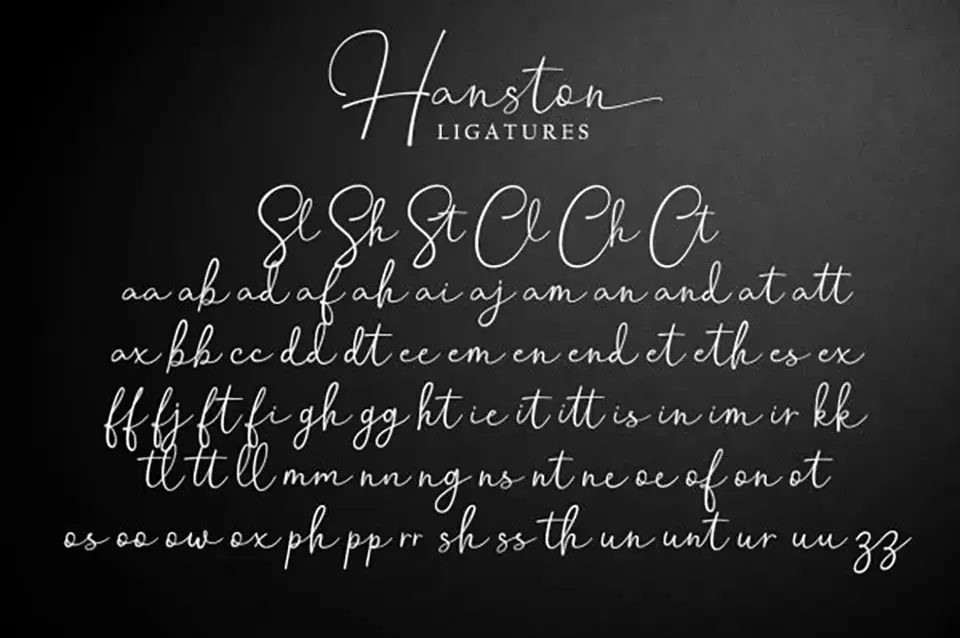 Hanston
LIGATURES
Sl Sh St Cl Ch Ct
aa ab ad af ah ai aj am an and at att
ax bb cc dd dt ee em en end et eth es ex
ff fj ft fi gh gg ht ie it itt is in im ir kk
tl tt ll mm nn ng ns nt ne oe of on ot
os oo ow ox ph pp rr sh ss th un unt ur uu zz